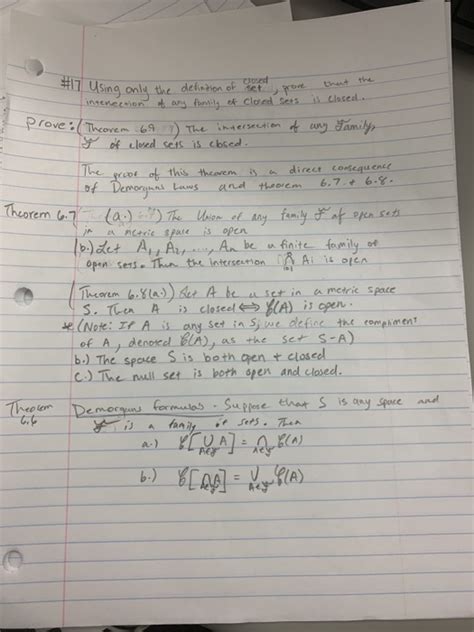 #17 Using only the definition of closed set, prove that the
intersection of any family of closed sets is closed.
Prove: (Theorem 6.9) The intersection of any Family,
ℱ of closed sets is closed.
The proof of this theorem is a direct consequence
of Demorguns Laws and theorem 6.7 + 6.8.
Theorem 6.7 (a.) The Union of any family ℱ of open sets
in a metric space is open
(b.) Let A₁, A₂, ..., Aₙ be a finite family of
open sets. Then the intersection ⋂ Ai is open
(Theorem 6.8(a.)) Let A be a set in a metric space
S. Then A is closed ⟺ 𝒞(A) is open.
* (Note: If A is any set in S, we define the compliment
of A, denoted 𝒞(A), as the set S-A)
b.) The space S is both open + closed
c.) The null set is both open and closed.
Theorem 6.6 Demorguns formulas - Suppose that S is any space and
ℱ is a family of sets. Then
a.) 𝒞[⋃_{A∈ℱ} A] = ⋂_{A∈ℱ} 𝒞(A)
b.) 𝒞[⋂_{A∈ℱ} A] = ⋃_{A∈ℱ} 𝒞(A)